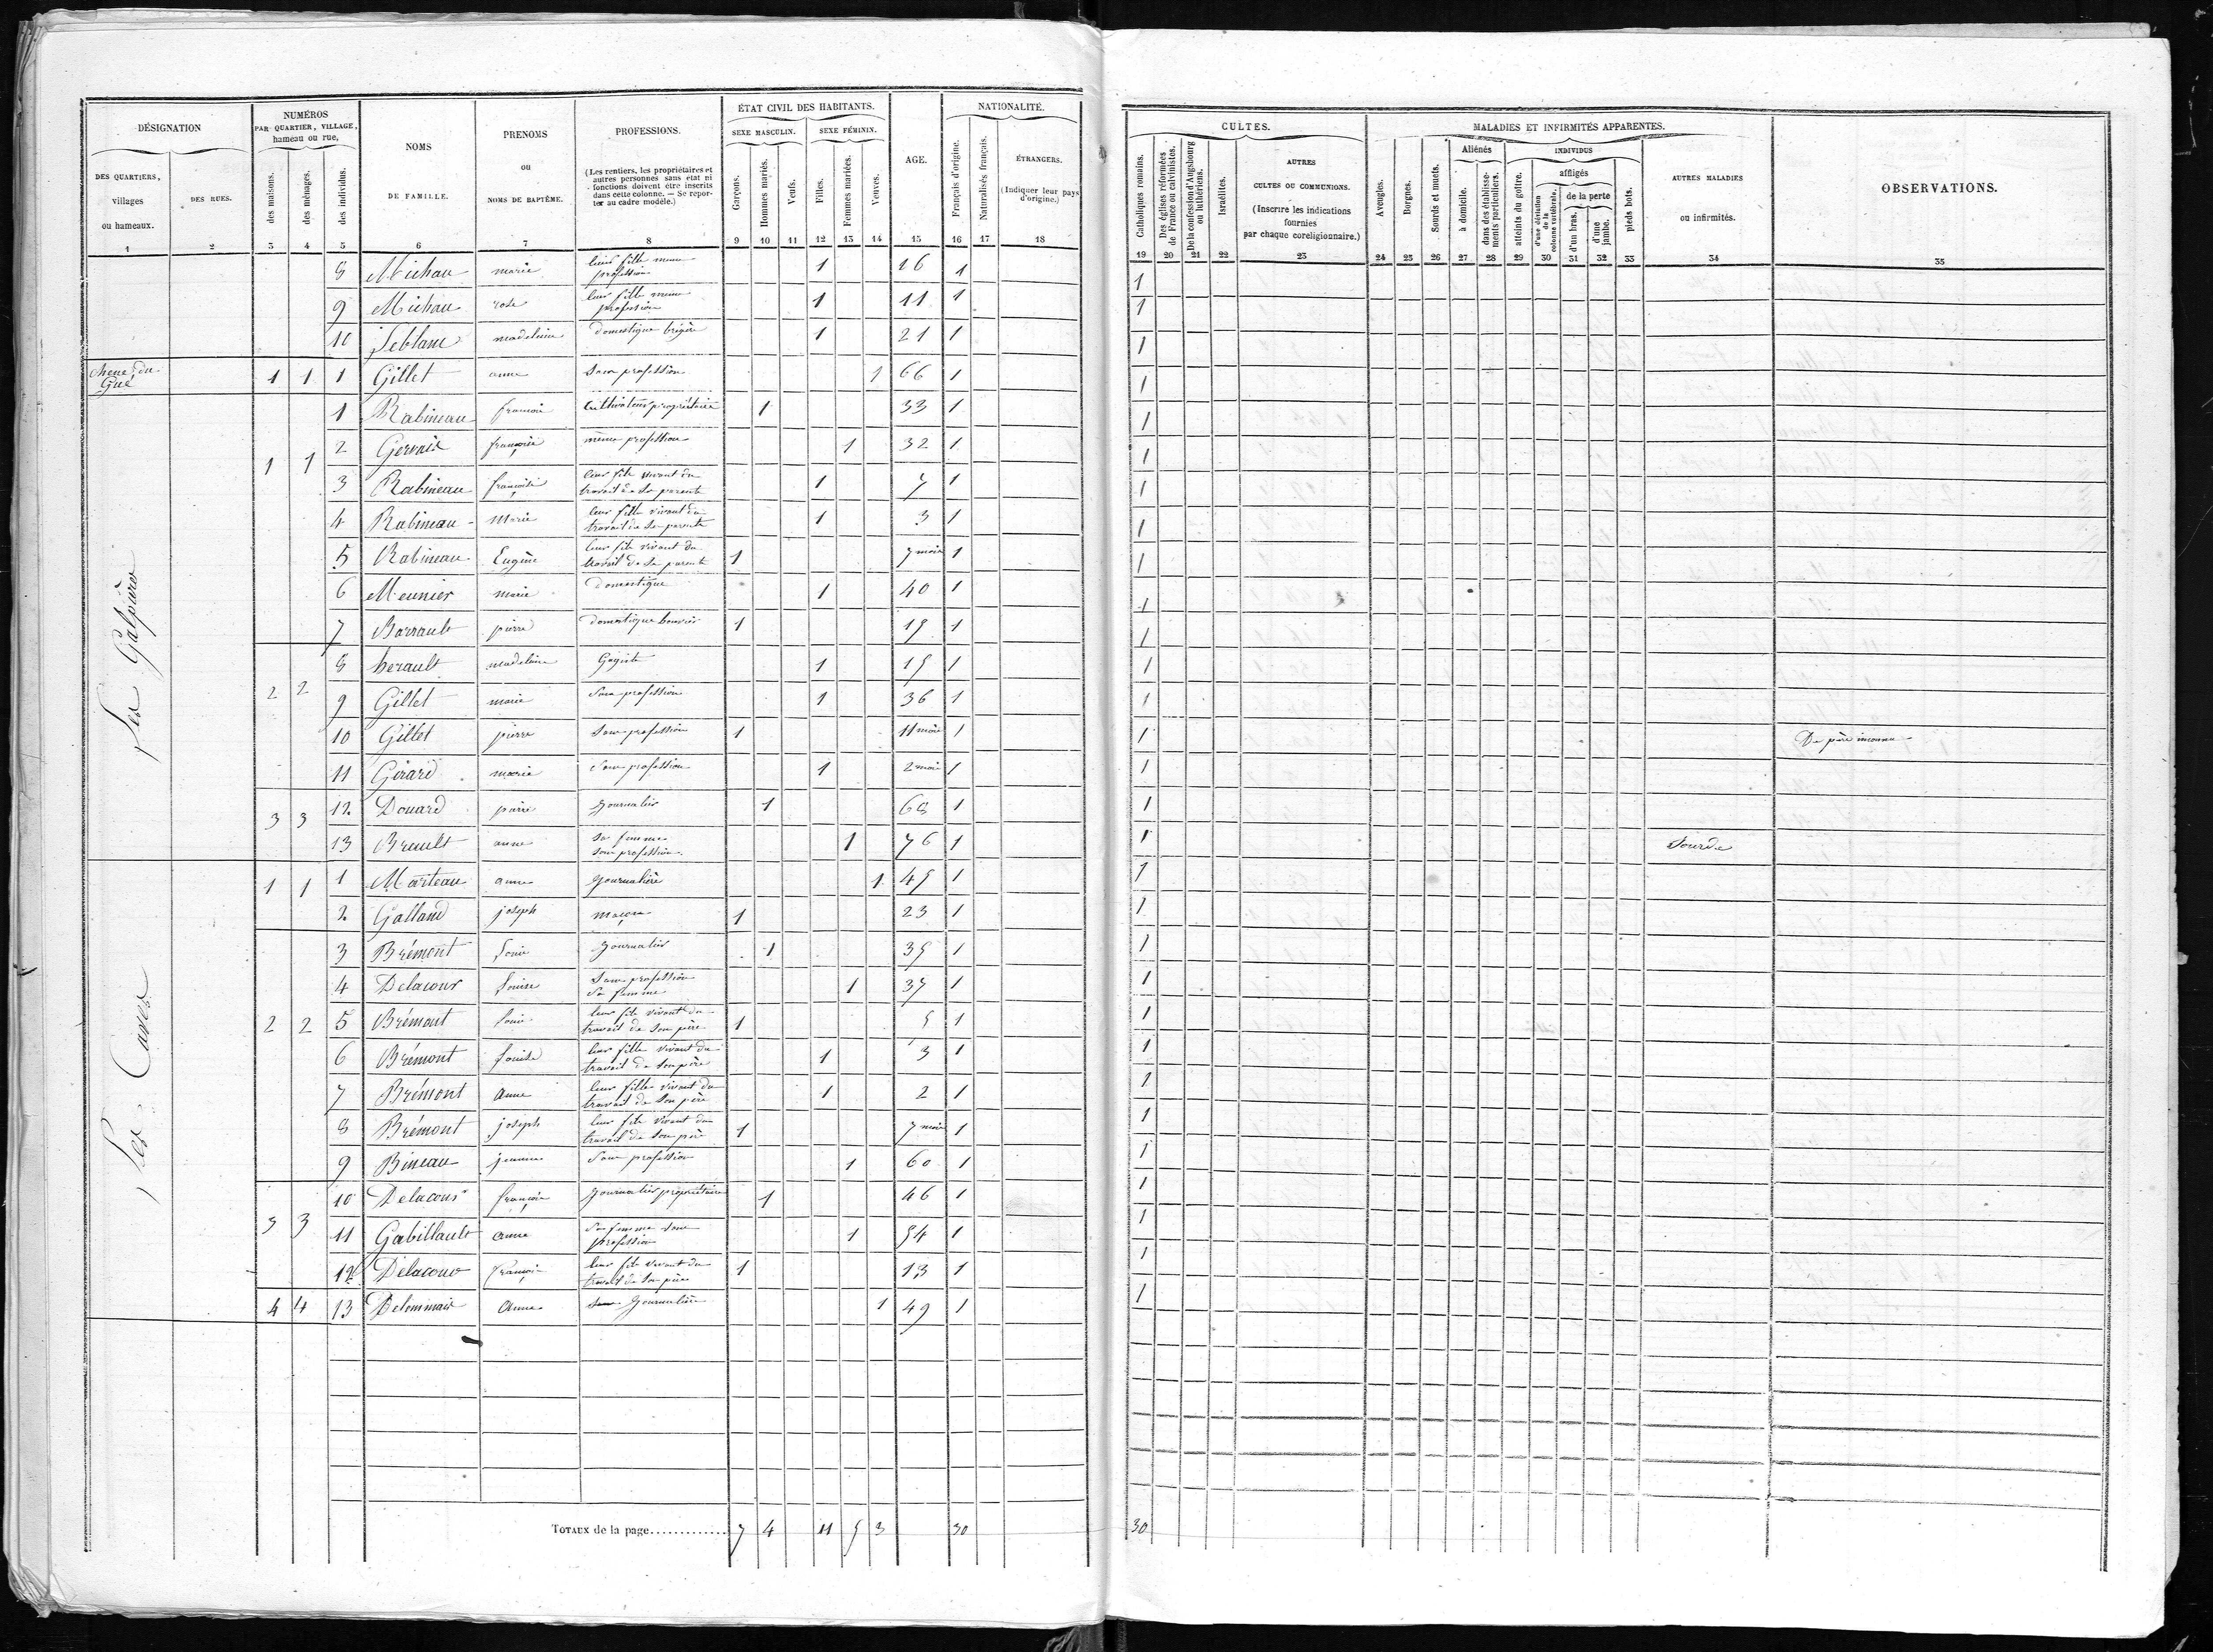 DÉSIGNATION
DES QUARTIERS,
villages
ou hameaux.
DES RUES.
NUMÉROS
PAR QUARTIER, VILLAGE,
hameau ou rue,
des maisons.
des ménages.
des individus.
NOMS
DE FAMILLE.
PRENOMS
ou
NOMS DE BAPTÊME.
PROFESSIONS.
(Les rentiers, les propriétaires et
autres personnes sans état ni
fonctions doivent être inscrits
dans cette colonne. — Se repor-
ter au cadre modèle.)
ÉTAT CIVIL DES HABITANTS.
SEXE MASCULIN.
SEXE FÉMININ.
Garçons.
Hommes mariés.
Veufs.
Filles.
Femmes mariées.
Veuves.
AGE.
NATIONALITÉ.
Français d'origine.
Naturalisés français.
ÉTRANGERS.
(Indiquer leur pays
d'origine.)
1 2 3 4 5 6 7 8 9 10 11 12 13 14 15 16 17 18
8 Michau marie leur fille meme profession 1 16 1
9 Michau rose leur fille meme profession 1 11 1
10 Leblanc madeleine domestique brigère 1 21 1
chene du Gué 1 1 1 Gillet anne Sans profession 1 66 1
Les Galpières
1 1
1 Rabineau françois Cultivateur propriétaire 1 33 1
2 Gervais françoise même profession 1 32 1
3 Rabineau françoise leur fille vivant du travail de ses parents 1 7 1
4 Rabineau Marie leur fille vivant du travail de ses parents 1 3 1
5 Rabineau Eugène leur fils vivant du travail de ses parents 1 7 mois 1
6 Meunier marie domestique 1 40 1
7 Barrault pierre domestique bouvier 1 15 1
2 2
8 herault madeleine Gagiste 1 15 1
9 Gillet marie Sans profession 1 36 1
10 Gillet pierre Sans profession 1 11 mois 1
11 Girard marie Sans profession 1 2 mois 1
3 3
12 Douard pierre Journalier 1 68 1
13 Brault anne Sa femme sans profession 1 76 1
Les Caves
1 1
1 Marteau anne Journalière 1 45 1
2 Galland joseph maçon 1 23 1
2 2
3 Brémont Louis Journalier 1 35 1
4 Delacour Louise Sans profession Sa femme 1 37 1
5 Brémont Louis leur fils vivant du travail de son père 1 5 1
6 Brémont Louise leur fille vivant du travail de son père 1 3 1
7 Brémont Anne leur fille vivant du travail de son père 1 2 1
8 Brémont joseph leur fils vivant du travail de son père 1 7 mois 1
9 Bineau jeanne Sans profession 1 60 1
3 3
10 Delacour françois Journalier propriétaire 1 46 1
11 Gabillault anne Sa femme sans profession 1 54 1
12 Delacour françois leur fils vivant du travail de son père 1 13 1
4 4 13 Delommais Anne Journalière 1 49 1
TOTAUX de la page............ 7 4 11 5 3 30
CULTES.
Catholiques romains.
Des églises réformées
de France ou calvinistes.
De la confession d'Augsbourg
ou luthériens.
Israélites.
AUTRES
CULTES OU COMMUNIONS.
(Inscrire les indications
fournies
par chaque coreligionnaire.)
MALADIES ET INFIRMITÉS APPARENTES.
Aveugles.
Borgnes.
Sourds et muets.
Aliénés
à domicile.
dans des établisse-
ments particuliers.
INDIVIDUS
atteints du goître.
affligés
d'une déviation
de la
colonne vertébrale.
de la perte
d'un bras.
d'une
jambe.
pieds bots.
AUTRES MALADIES
ou infirmités.
OBSERVATIONS.
19 20 21 22 23 24 25 26 27 28 29 30 31 32 33 34 35
1
1
1
1
1
1
1
1
1
1
1
1
1
1 De père inconnu
1
1
1 Sourde
1
1
1
1
1
1
1
1
1
1
1
1
1
30